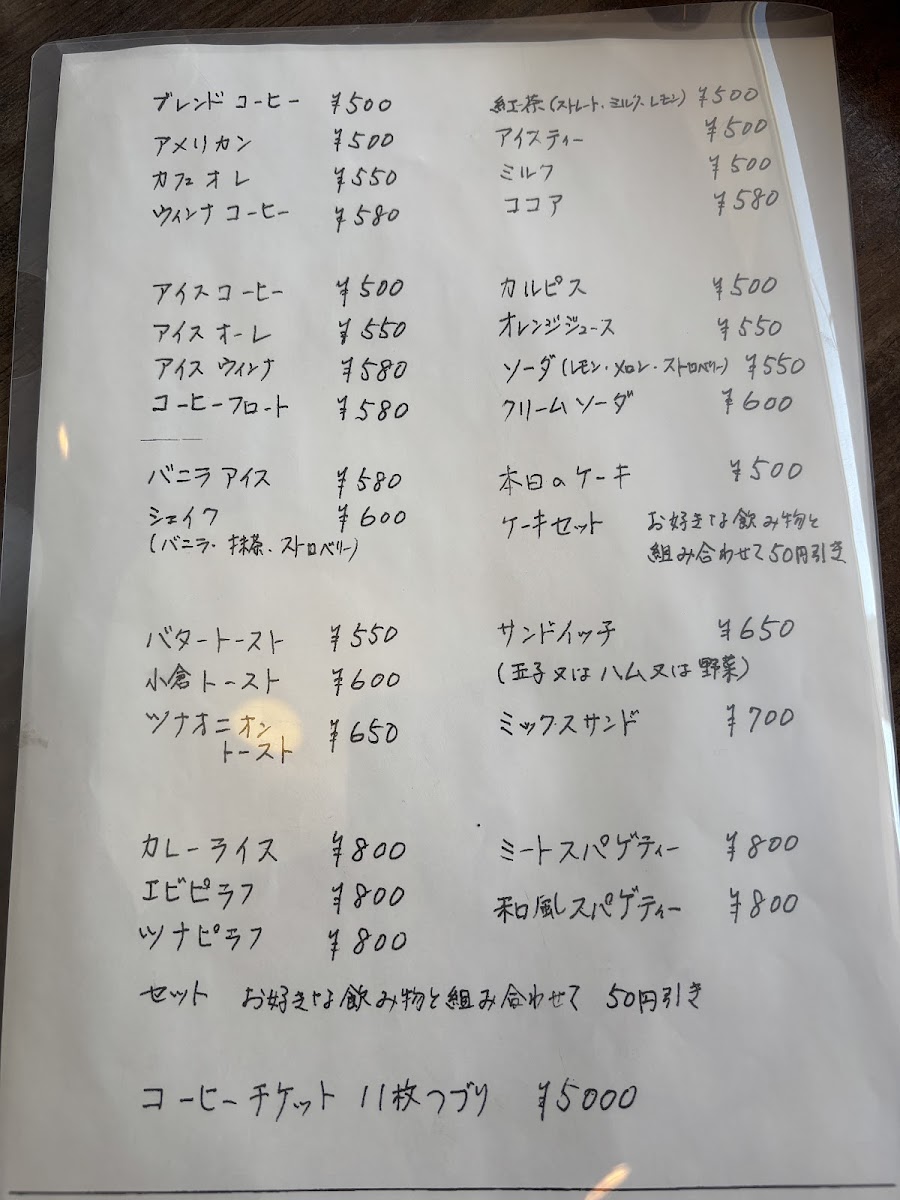 ブレンド コーヒー ¥500
アメリカン ¥500
カフェ オレ ¥550
ウィンナ コーヒー ¥580
アイス コーヒー ¥500
アイス オーレ ¥550
アイス ウィンナ ¥580
コーヒーフロート ¥580
バニラ アイス ¥580
シェイク ¥600
(バニラ・抹茶・ストロベリー)
紅茶(ストレート・ミルク・レモン) ¥500
アイスティー ¥500
ミルク ¥500
ココア ¥580
カルピス ¥500
オレンジジュース ¥550
ソーダ(レモン・メロン・ストロベリー) ¥550
クリームソーダ ¥600
本日のケーキ ¥500
ケーキセット お好きな飲み物と
組み合わせて50円引き
バタートースト ¥550
小倉トースト ¥600
ツナオニオン
トースト ¥650
サンドイッチ ¥650
(玉子又はハム又は野菜)
ミックスサンド ¥700
カレーライス ¥800
エビピラフ ¥800
ツナピラフ ¥800
ミートスパゲティー ¥800
和風スパゲティー ¥800
セット お好きな飲み物と組み合わせて 50円引き
コーヒーチケット 11枚つづり ¥5000